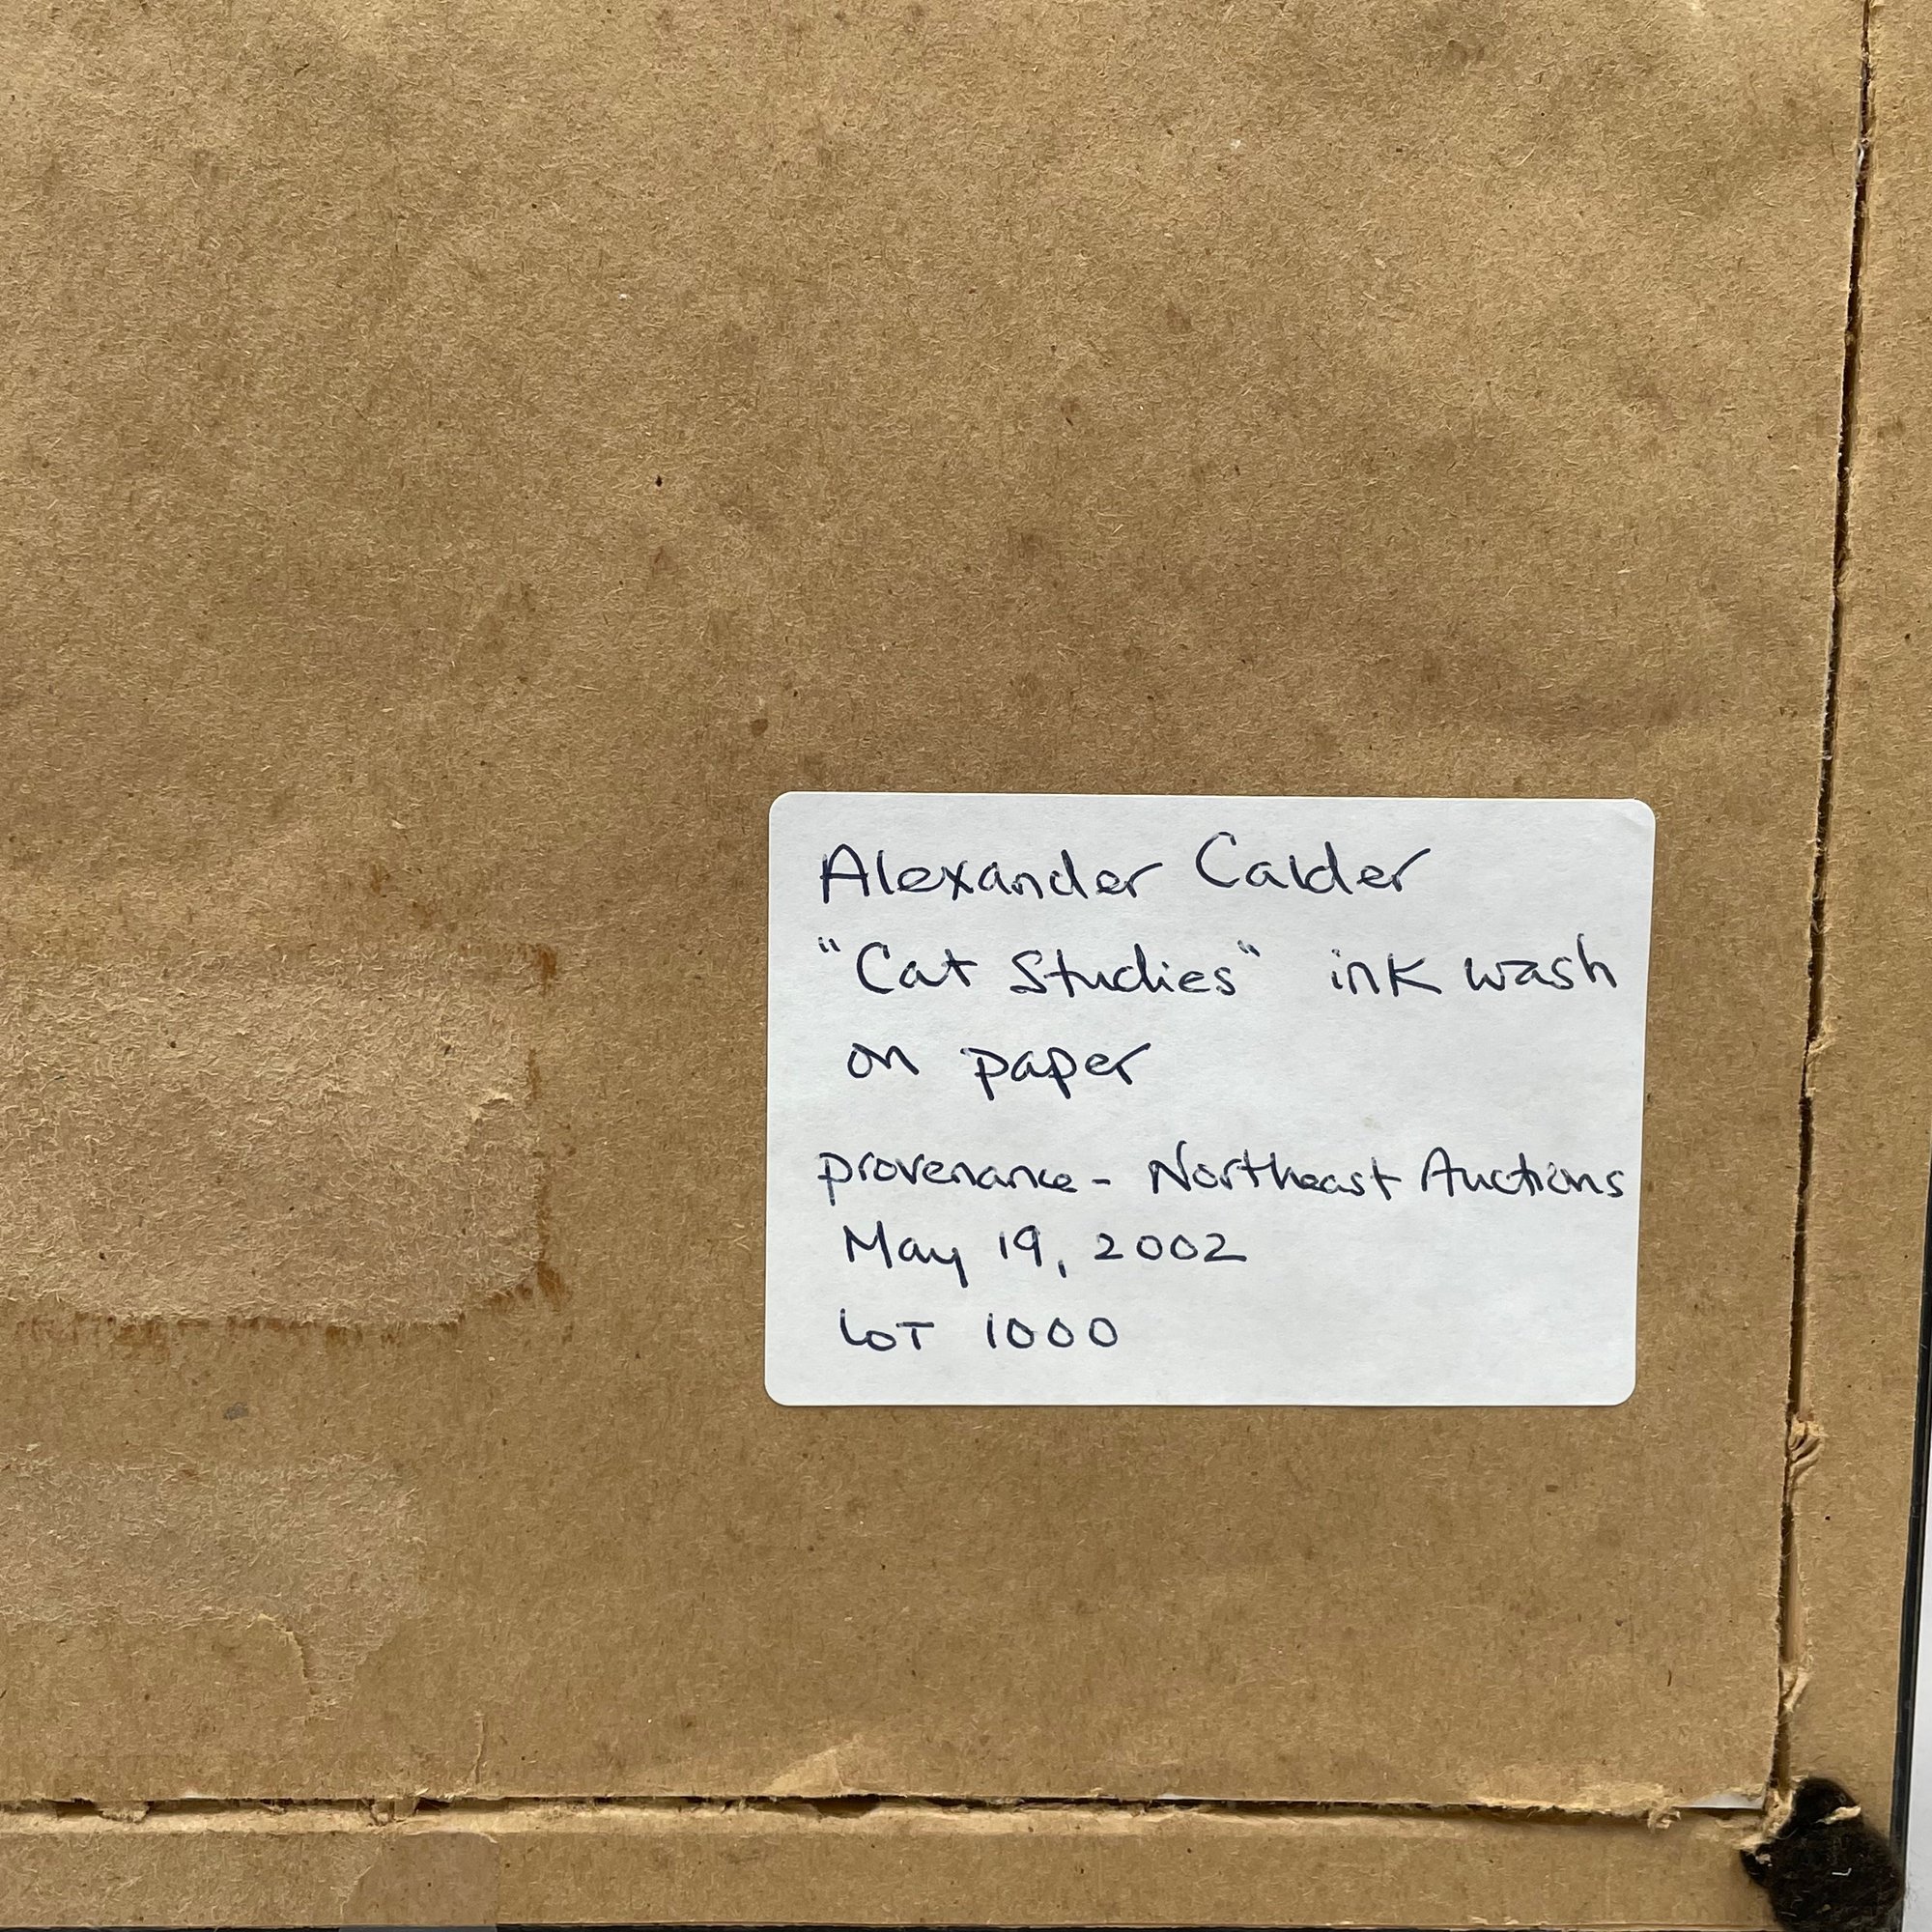 Alexander Calder
"Cat Studies" ink wash
on paper
provenance - Northeast Auctions
May 19, 2002
LOT 1000